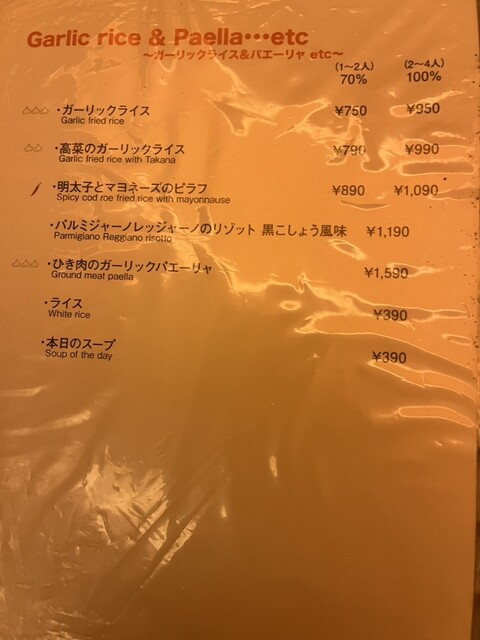 Garlic rice & Paella･･･etc
～ガーリックライス&パエーリャ etc～
(1～2人) (2～4人)
70% 100%
･ガーリックライス ¥750 ¥950
Garlic fried rice
･高菜のガーリックライス ¥790 ¥990
Garlic fried rice with Takana
･明太子とマヨネーズのピラフ ¥890 ¥1,090
Spicy cod roe fried rice with mayonnause
･パルミジャーノレッジャーノのリゾット 黒こしょう風味 ¥1,190
Parmigiano Reggiano risotto
･ひき肉のガーリックパエーリャ ¥1,590
Ground meat paella
･ライス ¥390
White rice
･本日のスープ ¥390
Soup of the day